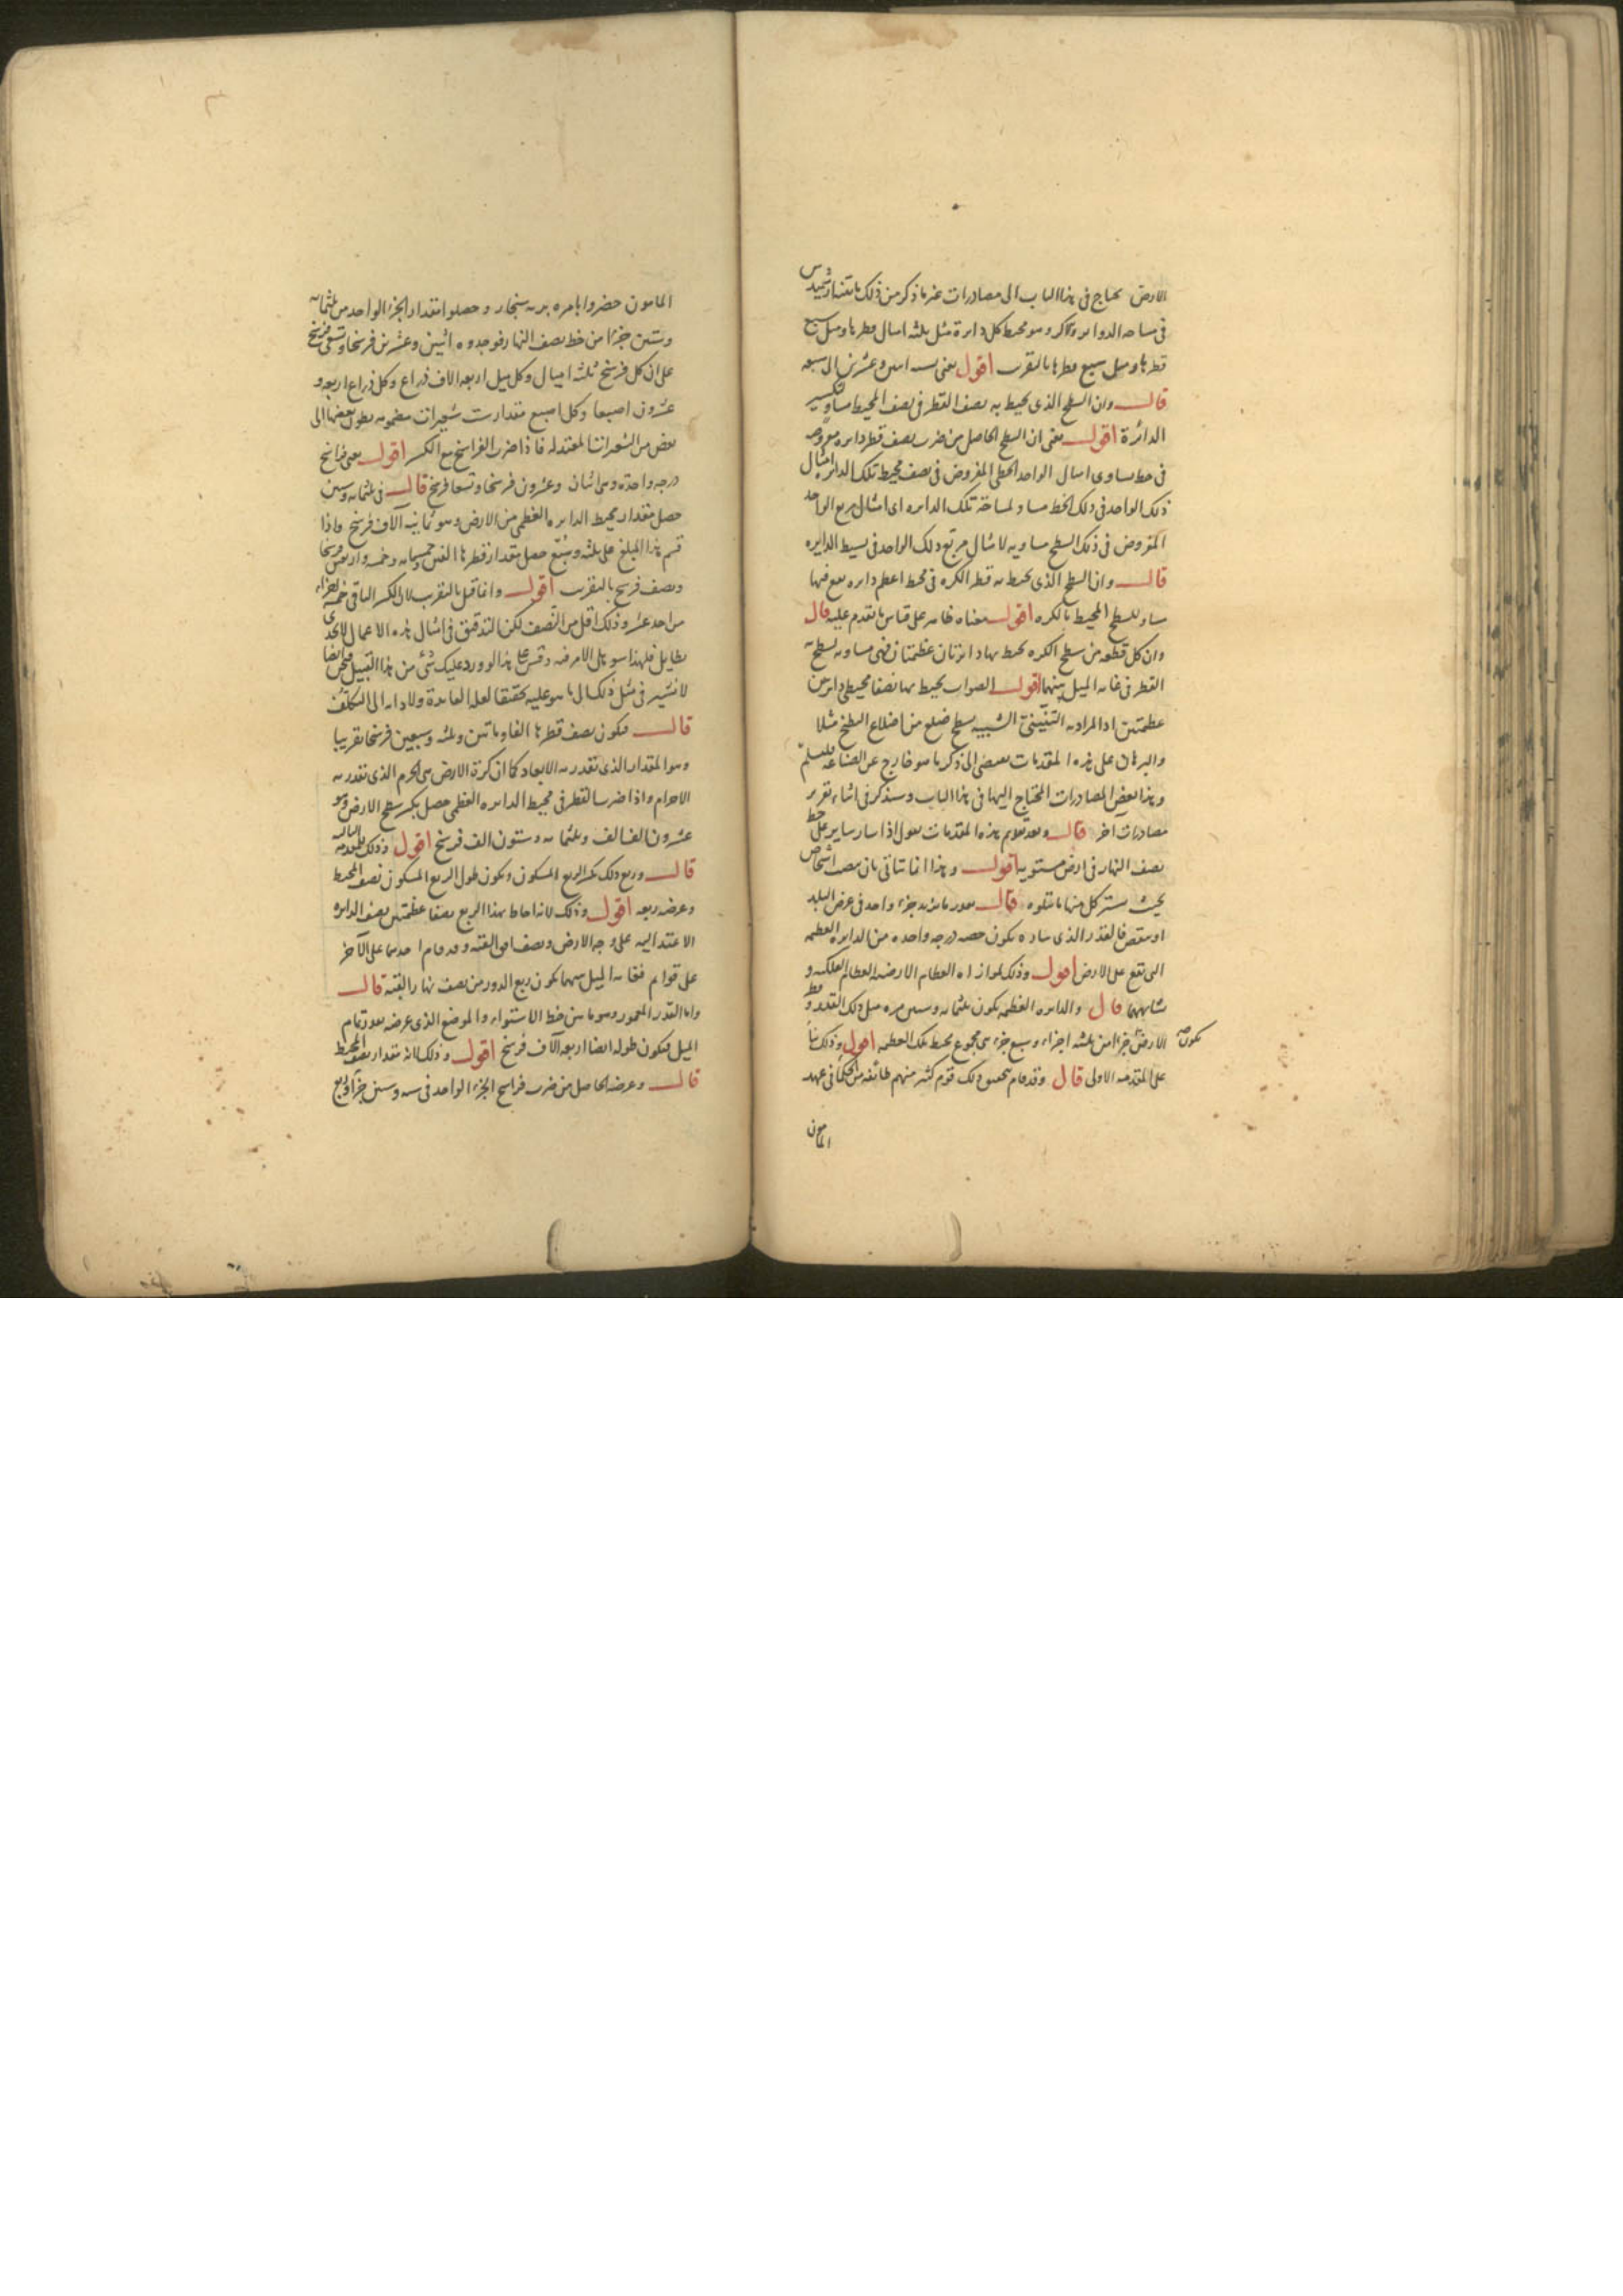 الارض يحتاج فى هذا الباب الى مصادرات غير ما ذكر من ذلك ما بينه ارشميدس
فى مساحه الدواير والاكر وهو محيط كل دايرة مثل ثلثه امثال قطرها ومثل سبع
قطرها ومثل سبع قطرها بالتقريب اقول يعنى نسبه اثنين وعشرين الى سبعه
قال وان السطح الذى يحيط به نصف القطر فى نصف المحيط مساو لتكسير
الدائرة اقول يعنى ان السطح الحاصل من ضرب نصف قطر دايره مفروضه
فى خط يساوى امثال الواحد الخطى المفروض فى نصف محيط تلك الدايره امثال
ذلك الواحد فى ذلك الخط مساو لمساحة تلك الدايره اى امثال مربع الواحد
المفروض فى ذلك السطح مساويه لامثال مربع ذلك الواحد فى بسيط الدايره
قال وان السطح الذى يحيط به قطر الكره فى محيط اعظم دايره تقع فيها
مساو للسطح المحيط بالكره اقول معناه ظاهر على قياس ما تقدم عليه قال
وان كل قطعه من سطح الكره يحيط بها دايرتان عظيمتان فهى مساويه لسطح
القطر فى غايه الميل بينهما اقول الصواب يحيط بها نصفا محيطى دايرتين
عظيمتين اذ المراد به الشبيه بسطح ضلع من اضلاع البطيخ مثلا
والبرهان على هذه المقدمات يفضى الى ذكر ما هو خارج عن الصناعه
وهذا بعض المصادرات المحتاج اليها فى هذا الباب وسنذكر فى اثناء تقرير
مصادرات اخر قال وبعد تقديم هذه المقدمات نقول اذا سار ساير على خط
نصف النهار فى ارض مستويه اقول وهذا انما يتاتى بان ينصب اشخاص
بحيث يستر كل منها ما يتلوه قال بقدر ما يزيد جزء واحد فى عرض البلد
او ينقص فالقدر الذى ساره يكون حصه درجه واحده من الدايره العظيمه
التى تقع على الارض اقول وذلك لموازاه العظام الارضيه العظام الفلكيه و
تشابههما قال والدايره العظيمه يكون ثلثمائه وستين مره مثل ذلك القدر وقطر
الارض يكون جزءا من ثلثه اجزاء وسبع جزء من مجموع محيط تلك العظيمه اقول وذلك بناء
على المقدمه الاولى قال وقد قام بتحقيق ذلك قوم كثير منهم طائفه من الحكماء فى عهد
المامون
المامون حضروا بامره بريه سنجار وحصلوا مقدار الجزء الواحد من ثلثمائه
وستين جزءا من خط نصف النهار فوجدوه اثنين وعشرين فرسخا وتسعى فرسخ
على ان كل فرسخ ثلثه اميال وكل ميل اربعه الاف ذراع وكل ذراع اربعه و
عشرون اصبعا وكل اصبع مقدار ست شعيرات مضمومه بطون بعضها الى
بعض من الشعيرات المعتدله فاذا ضرب الفراسخ مع الكسر اقول يعنى فراسخ
درجه واحدة وهى اثنان وعشرون فرسخا وتسعا فرسخ قال فى ثلثمائه وستين
حصل مقدار محيط الدايره العظمى من الارض وهو ثمانيه آلاف فرسخ واذا
قسم هذا المبلغ على ثلثه وسُبع حصل مقدار قطرها الفين وخمسمائه وخمسه واربعين فرسخا
ونصف فرسخ بالتقريب اقول وانما قيل بالتقريب لان الكسر الباقى خمسه اجزاء
من احد عشر وذلك اقل من النصف لكن التدقيق فى امثال هذه الاعمال لا يجدى
بطايل فلهذا سوهل الامر فيه وقس على هذا لو ورد عليك شئ من هذا القبيل فنحن ايضا
لا نشير فى مثل ذلك الى ما هو عليه تحقيقا لعله العايدة ولادايه الى التكلف
قال فيكون نصف قطرها الفا ومائتين وثلثه وسبعين فرسخا تقريبا
وهو المقدار الذى تقدر به الابعاد كما ان كرة الارض هى الجرم الذى تقدر به
الاجرام واذا ضرب القطر فى محيط الدايره العظمى حصل تكسير سطح الارض وهو
عشرون الف الف وثلثمائه وستون الف فرسخ اقول وذلك للمقدمه الثالثه
قال وربع ذلك تكسير الربع المسكون ويكون طول الربع المسكون نصف المحيط
وعرضه ربعه اقول وذلك لانه احاط بهذا الربع نصفا عظيمتين نصف الدايره
الاعتداليه على وجه الارض ونصف افق القبه وقد قام احدهما على الآخر
على قوايم فغايه الميل بينهما يكون ربع الدور من نصف نهار القبه قال
واما القدر المعمور وهو ما بين خط الاستواء والموضع الذى عرضه بقدر تمام
الميل فيكون طوله ايضا اربعه آلاف فرسخ اقول وذلك لانه مقدار نصف المحيط
قال وعرضه الحاصل من ضرب فراسخ الجزء الواحد فى سته وستين جزءا وربع